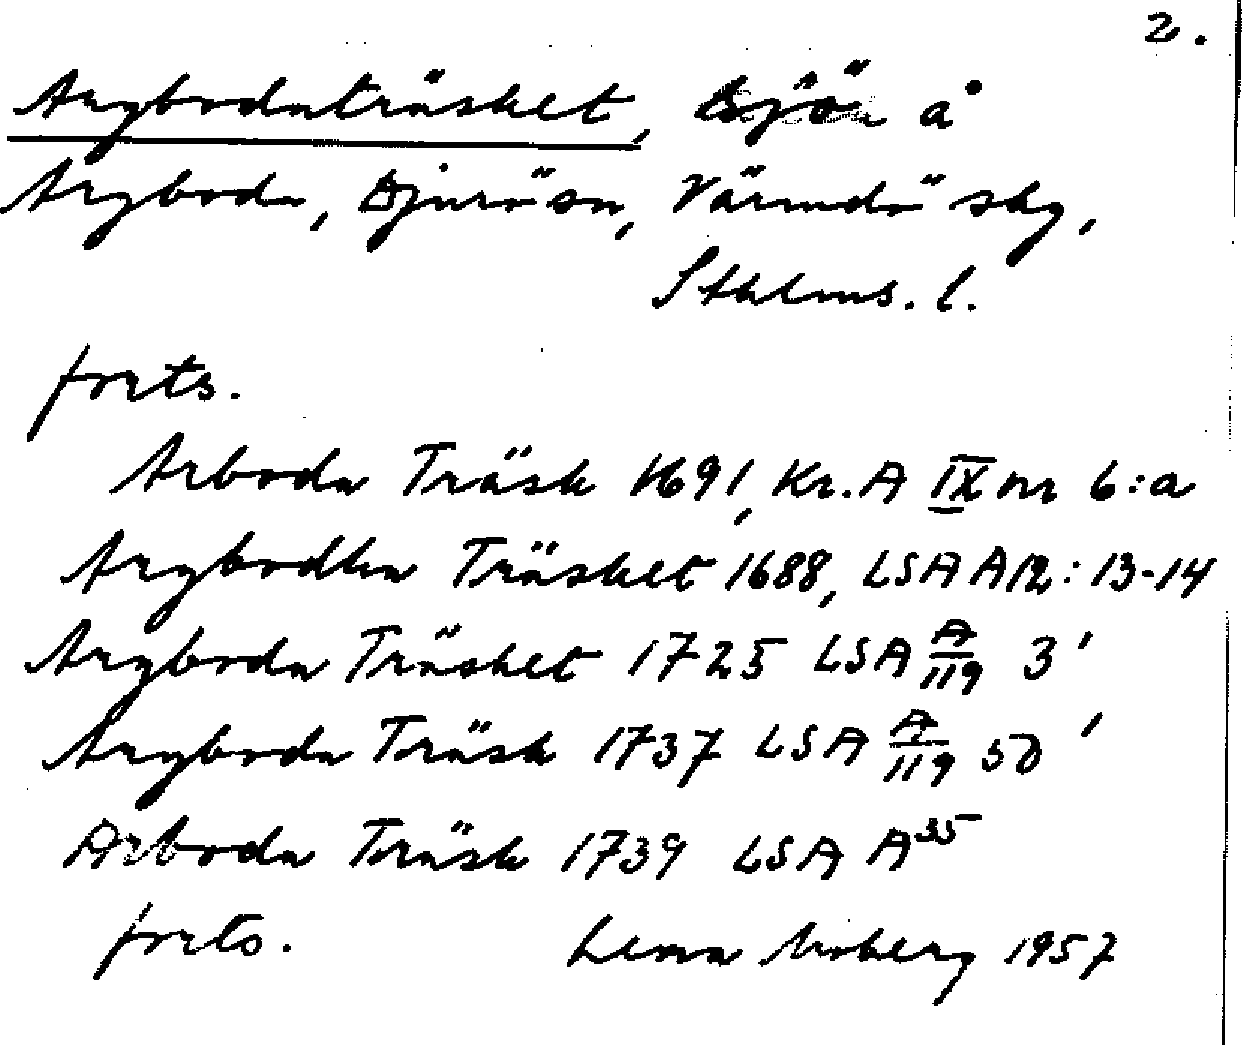 2.
Arybodaträsket, sjön å
Aryboda, Djurö sn, Värmdö skg,
Sthlms. l.
forts.
Arboda Träsk 1691, Kr. A IX nr 6:a
Arybodha Träsket 1688, LSA A12:13-14
Aryboda Träsket 1725 LSA A/119 3'
Aryboda Träsk 1737 LSA A/119 50'
Arboda Träsk 1739 LSA A³⁵
forts. Lena Moberg 1957